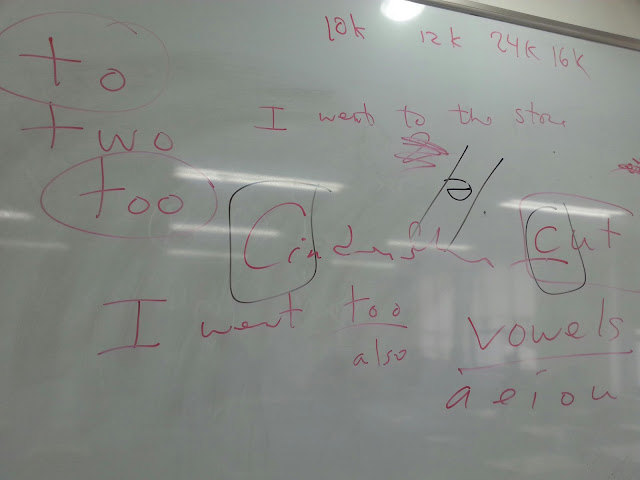 10k 12k 24k 16k
to
I went to the store
two
ə
too
cut
I went too
also
vowels
a e i o u